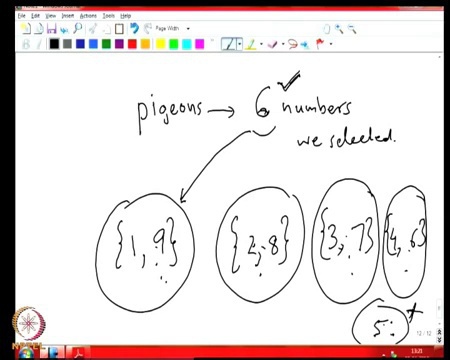 File Edit View Insert Actions Tools Help
Page Width
B
pigeons → 6 numbers
we selected.
{1, 9} {2, 8} {3, 7} {4, 6}
5
12 / 12
13:21